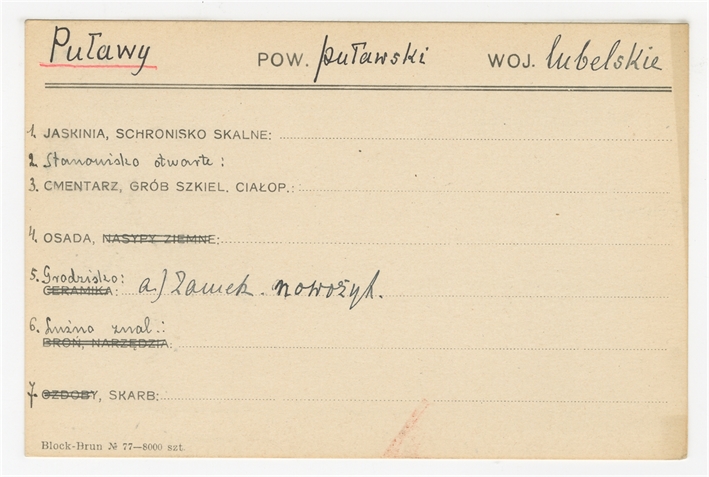 Puławy POW. puławski WOJ. lubelskie
1. JASKINIA, SCHRONISKO SKALNE:
2. Stanowisko otwarte:
3. CMENTARZ, GRÓB SZKIEL. CIAŁOP.:
4. OSADA, NASYPY ZIEMNE:
5. Grodzisko:
CERAMIKA: a) Zamek. nowożyt.
6. Luźno znal.:
BROŃ, NARZĘDZIA:
7. OZDOBY, SKARB:
Block-Brun № 77—8000 szt.